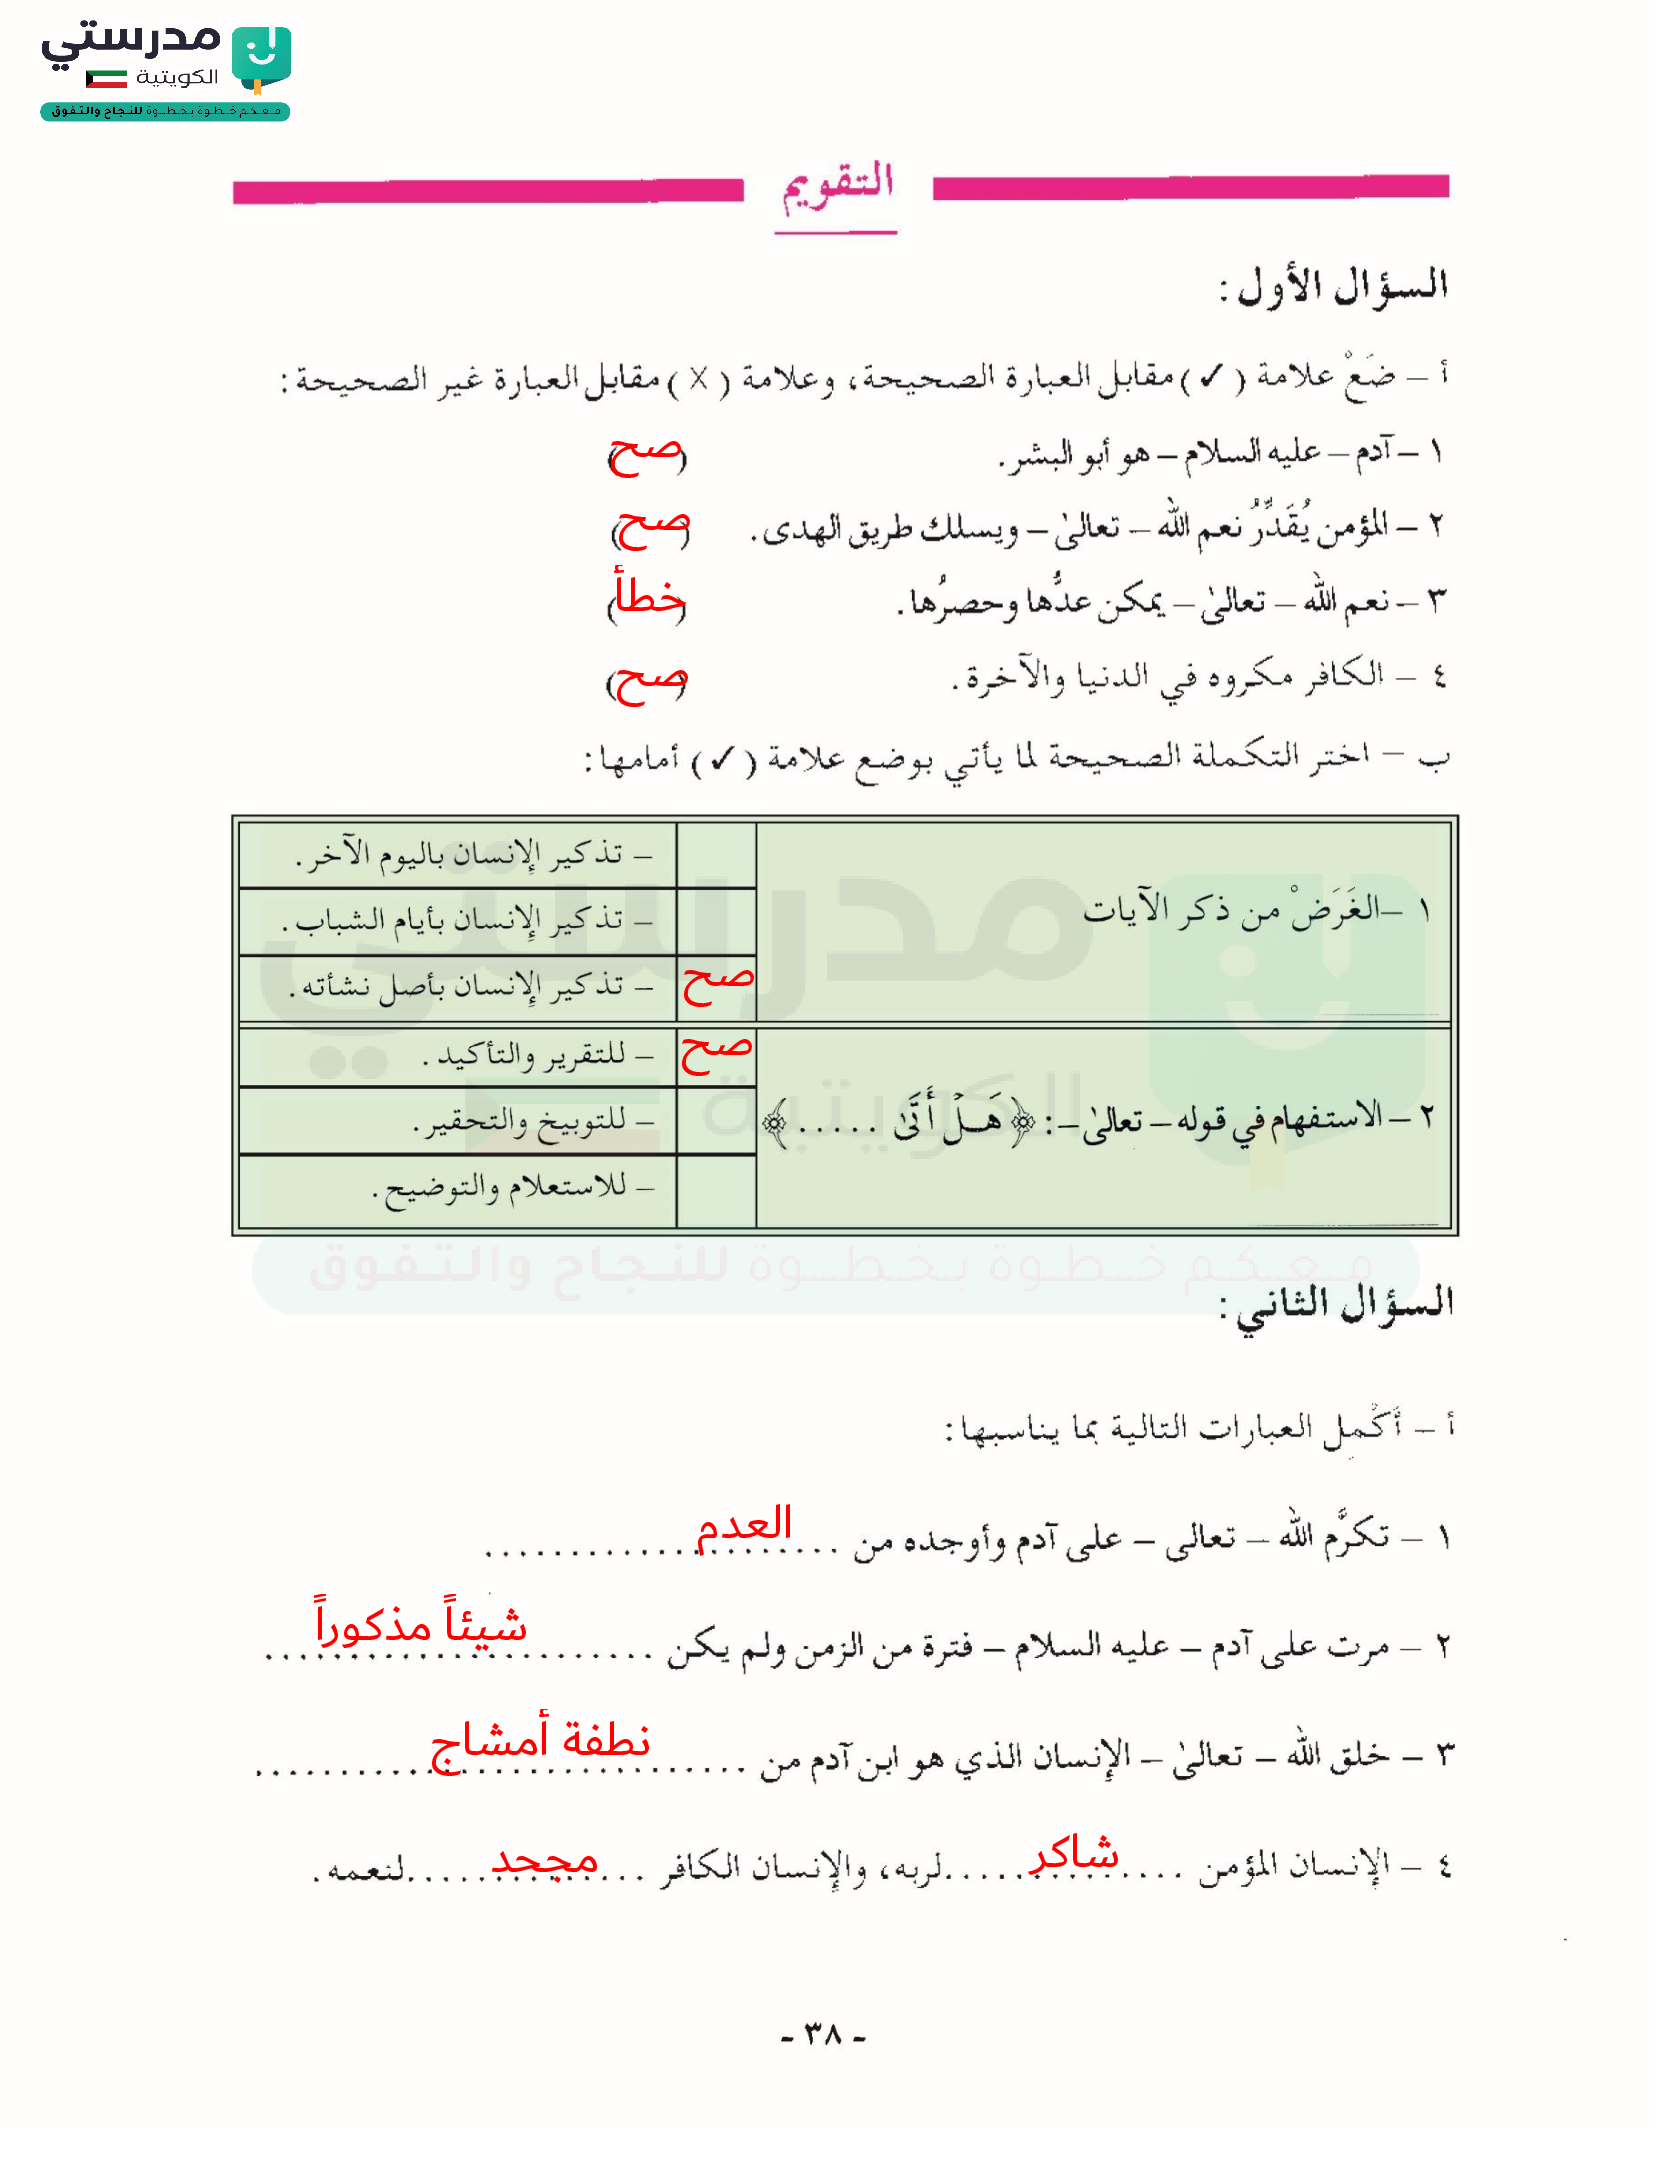 مدرستي
الكويتية
معكم خطوة بخطوة للنجاح والتفوق
التقويم
السؤال الأول :
أ – ضَعْ علامة ( ✓ ) مقابل العبارة الصحيحة، وعلامة ( X ) مقابل العبارة غير الصحيحة :
١ – آدم – عليه السلام – هو أبو البشر. (صح)
٢ – المؤمن يُقَدِّرُ نعم الله – تعالىٰ – ويسلك طريق الهدى . (صح)
٣ – نعم الله – تعالىٰ – يمكن عدُّها وحصرُها. (خطأ)
٤ – الكافر مكروه في الدنيا والآخرة. (صح)
ب – اختر التكملة الصحيحة لما يأتي بوضع علامة ( ✓ ) أمامها :
١ –الغَرَضْ من ذكر الآيات
– تذكير الإنسان باليوم الآخر.
– تذكير الإنسان بأيام الشباب.
صح – تذكير الإنسان بأصل نشأته.
٢ – الاستفهام في قوله – تعالىٰ –: ﴿ هَلْ أَتَىٰ ..... ﴾
صح – للتقرير والتأكيد .
– للتوبيخ والتحقير.
– للاستعلام والتوضيح.
مدرستي
الكويتية
معكم خطوة بخطوة للنجاح والتفوق
السؤال الثاني :
أ – أَكْمِل العبارات التالية بما يناسبها :
١ – تكرَّم الله – تعالى – على آدم وأوجده من العدم
٢ – مرت على آدم – عليه السلام – فترة من الزمن ولم يكن شيئاً مذكوراً
٣ – خلق الله – تعالىٰ – الإنسان الذي هو ابن آدم من نطفة أمشاج
٤ – الإنسان المؤمن شاكر لربه، والإنسان الكافر مجحد لنعمه .
- ٣٨ -